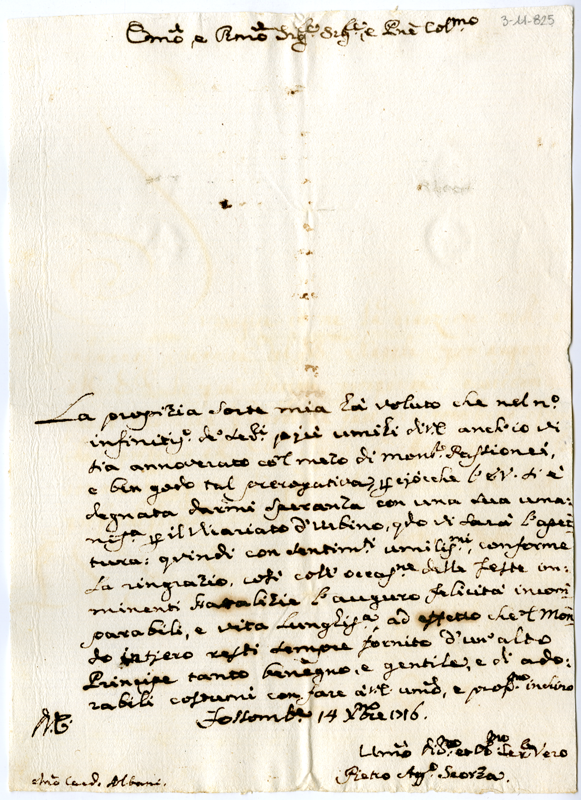 3-11-825
Em̃o e Rm̃o Sig.r Sig.r e Prne Col.mo
La propizia sorte mia hà voluto che nel n.o
infinitiss. de' Ser.i più umili di V.E. anch'io vi
sia annoverato col mezo di mons.r Passionei,
e ben godo tal prerogativa, perciòche l'E.V. si è
degnata darmi speranza con una sua uma=
niss.a p il Vicariato d'Urbino, qdo vi sarà l'aper=
tura: quindi con sentim.ti umiliss.mi, conforme
La ringrazio, così coll'occas.ne delle feste im=
minenti Natalizie l'auguro felicità incom=
parabili, e vita lunghiss.a, ad effetto che 'l Mon=
do intiero resti sempre fornito d'un'alto
Principe tanto benegno, e gentile, e di ado=
rabili costumi com fare à V.E. um.o, e prof.mo inchino
Fossomb.e 14 Xbre 1716.
Um̃o Di.mo et Ob.mo Ser. Vero
Pietro Ag.o Scorza.
em̃o Card. Albani.